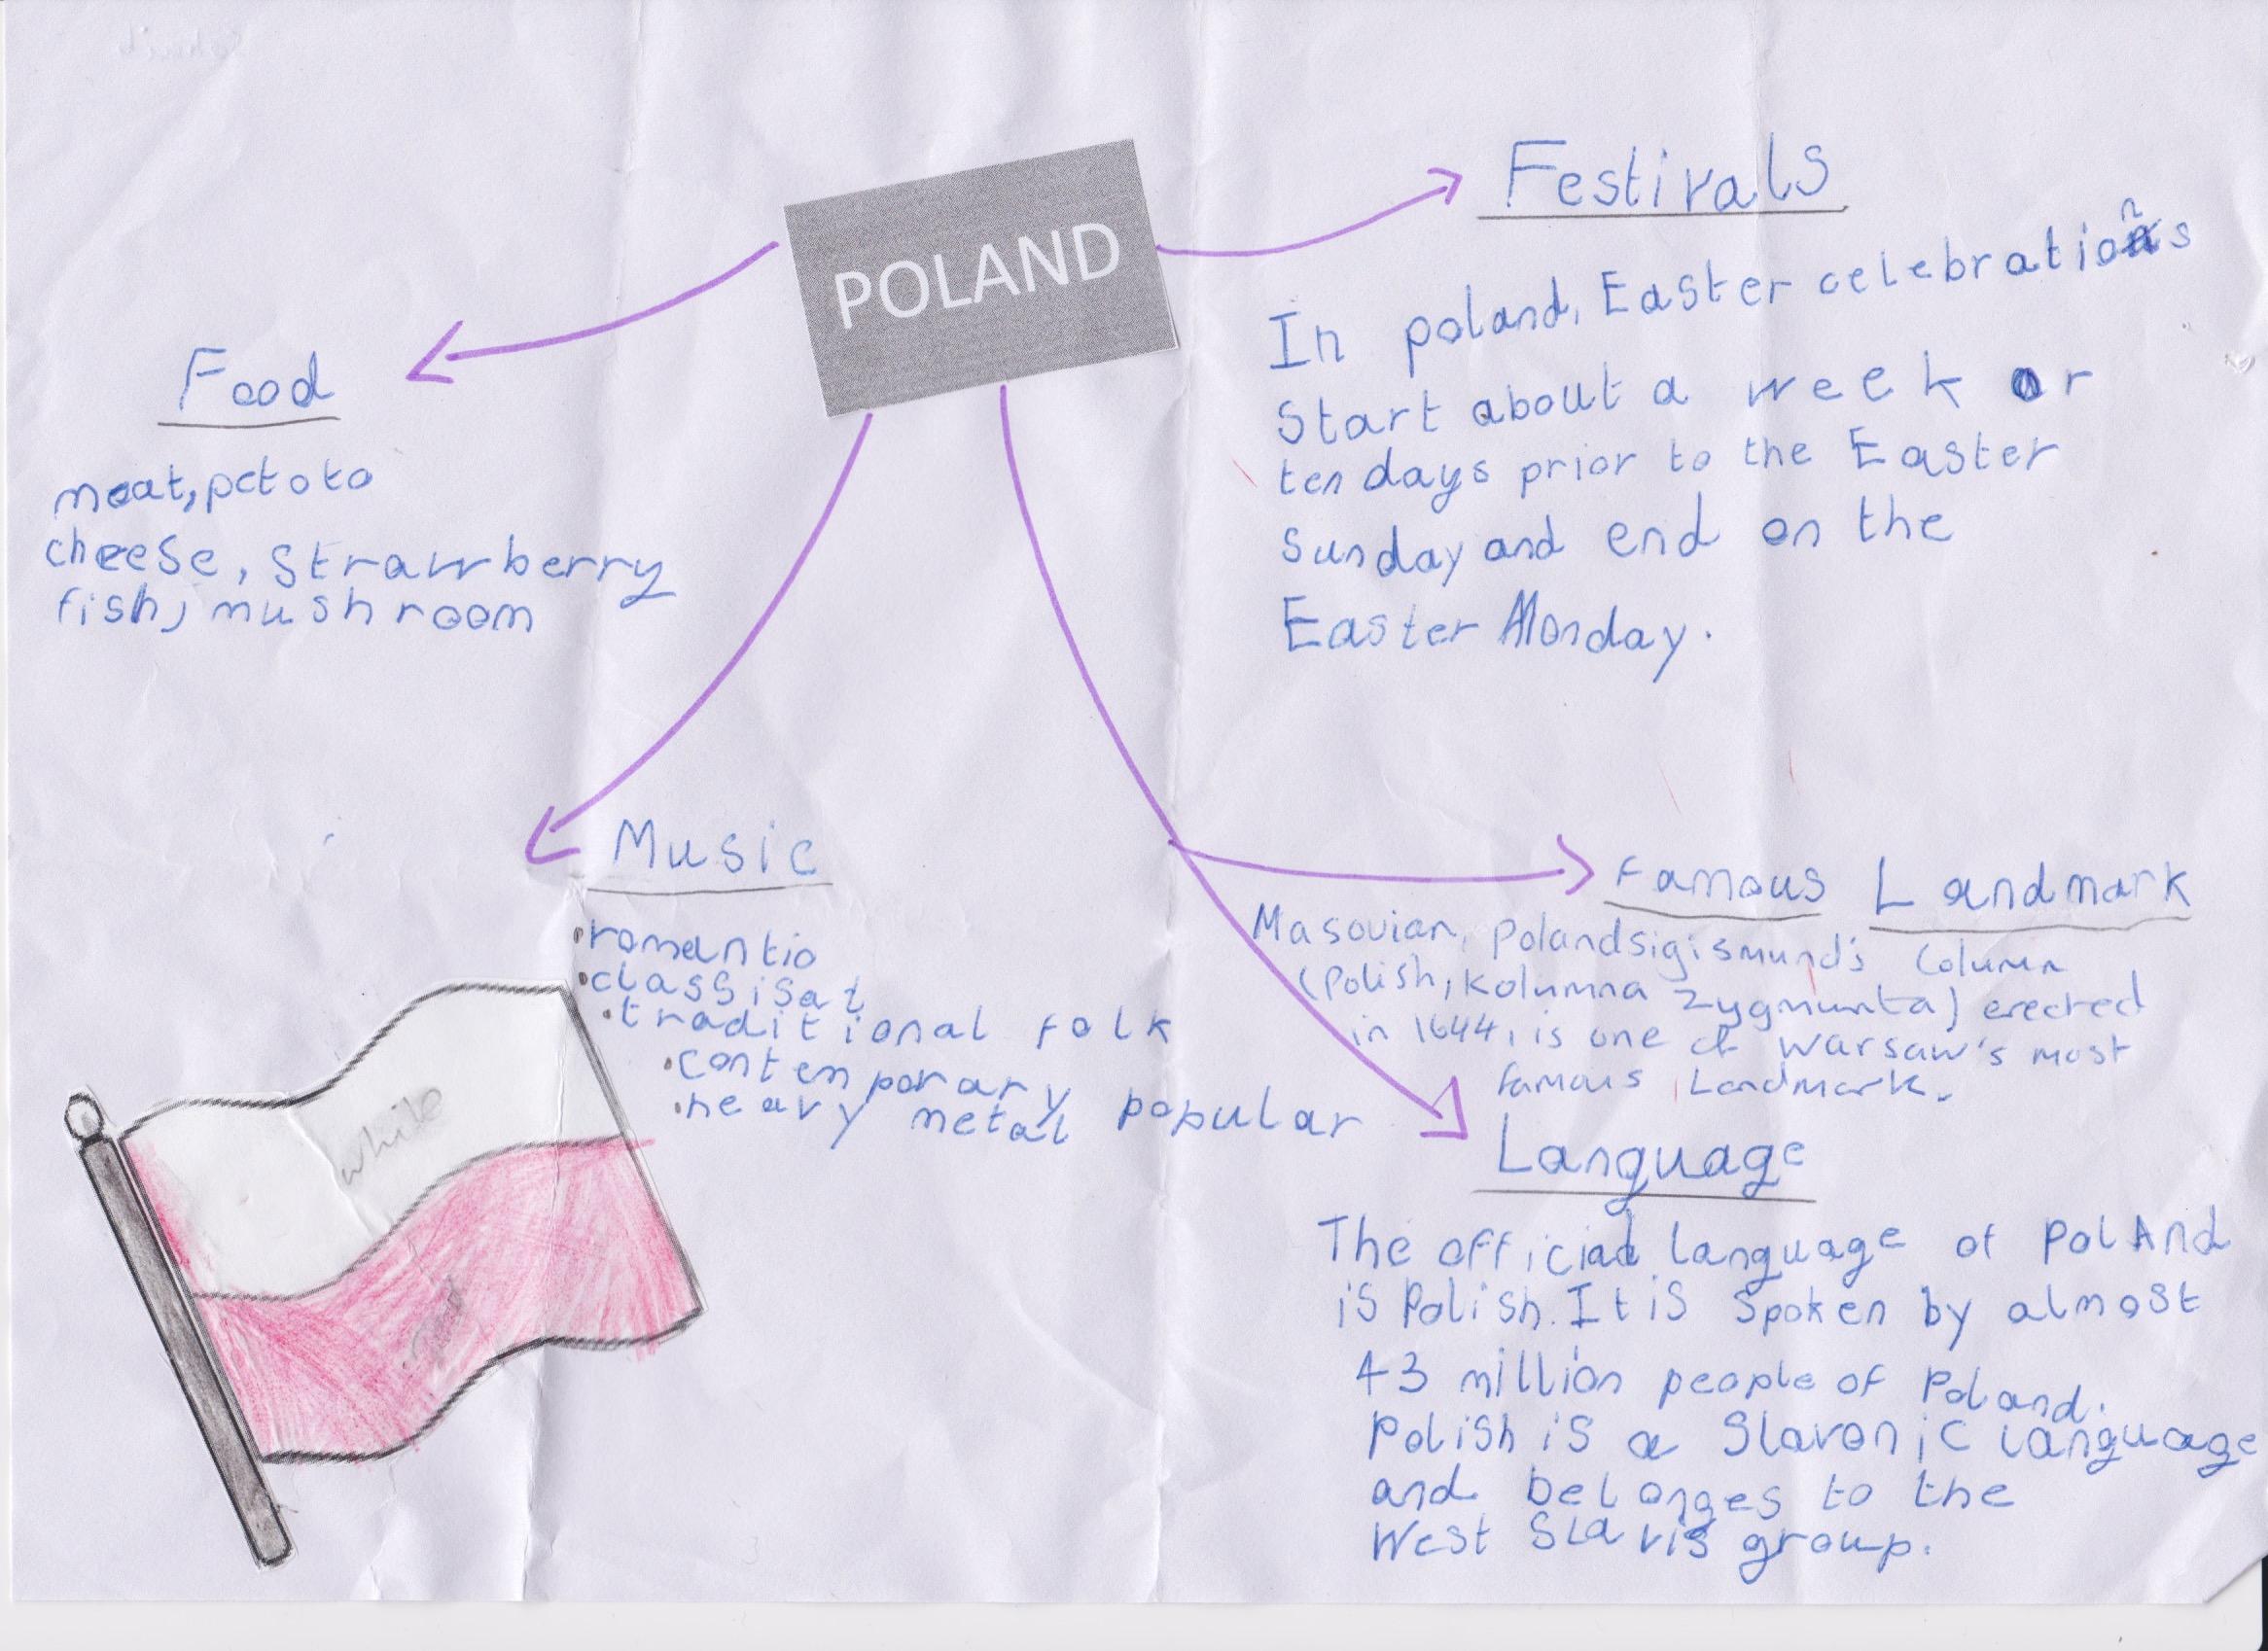 POLAND
Food
meat, pototo
cheese, strawberry
fish, mushroom
Festivals
In poland, Easter celebrations
Start about a week or
ten days prior to the Easter
Sunday and end on the
Easter Monday.
Music
•romantic
•classisat
•traditional folk
•contemporary
•heavy metal popular
Famous Landmark
Masovian, Polandsigismund's Column
(Polish, Kolumna Zygmunta) erected
in 1644, is one of Warsaw's most
famous Landmark.
Language
The official language of PolAnd
is Polish. It is spoken by almost
43 million people of Poland.
Polish is a Slavonic language
and belonges to the
West Slavis group.
white
red